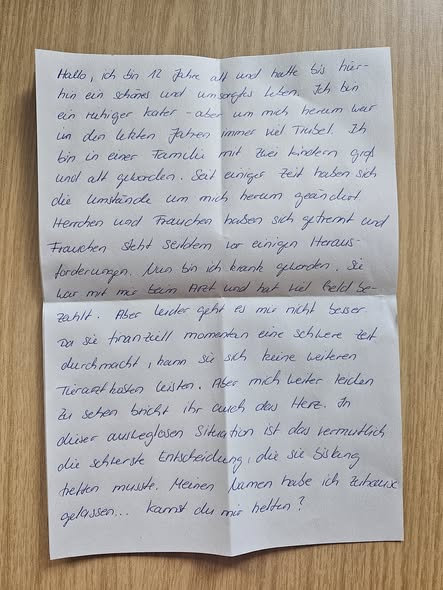 Hallo, ich bin 12 Jahre alt und hatte bis hier-
hin ein schönes und umsorgtes Leben. Ich bin
ein ruhiger Kater - aber um mich herum war
in den letzten Jahren immer viel Trubel. Ich
bin in einer Familie mit zwei Kindern groß
und alt geworden. Seit einiger Zeit haben sich
die Umstände um mich herum geändert
Herrchen und Frauchen haben sich getrennt und
Frauchen steht seitdem vor einigen Heraus-
forderungen. Nun bin ich krank geworden. Sie
war mit mir beim Arzt und hat viel Geld be-
zahlt. Aber leider geht es mir nicht besser.
Da sie finanziell momentan eine schwere Zeit
durchmacht, kann sie sich keine weiteren
Tierarztkosten leisten. Aber mich weiter leiden
zu sehen bricht ihr auch das Herz. In
dieser ausweglosen Situation ist das vermutlich
die schwerste Entscheidung, die sie bislang
treffen musste. Meinen Namen habe ich Zuhause
gelassen... kannst du mir helfen?